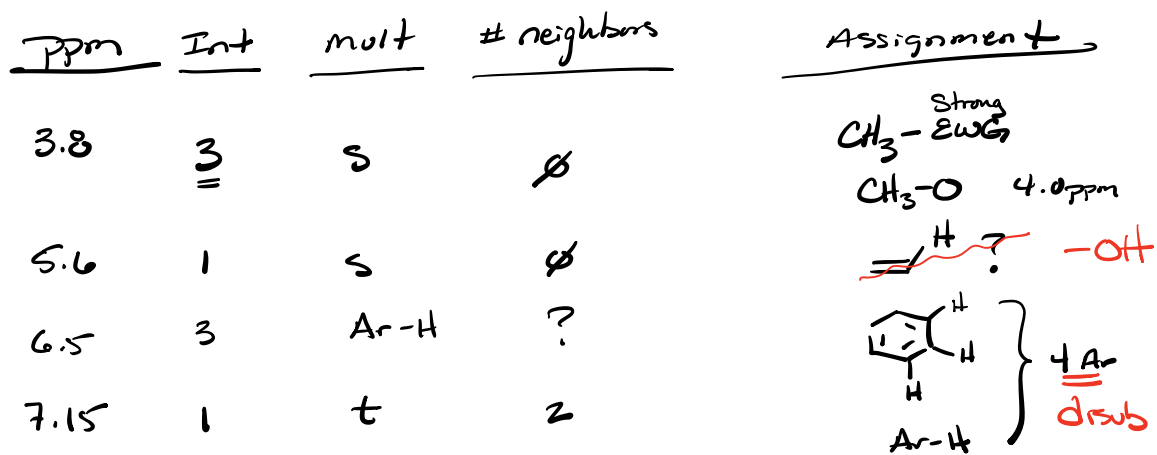 ppm Int mult # neighbors Assignment
3.8 3 s ø CH3 - Strong EWG
CH3-O 4.0ppm
5.6 1 s ø H ? -OH
6.5 3 Ar-H ? H H H
4 Ar
disub
7.15 1 t 2 Ar-H